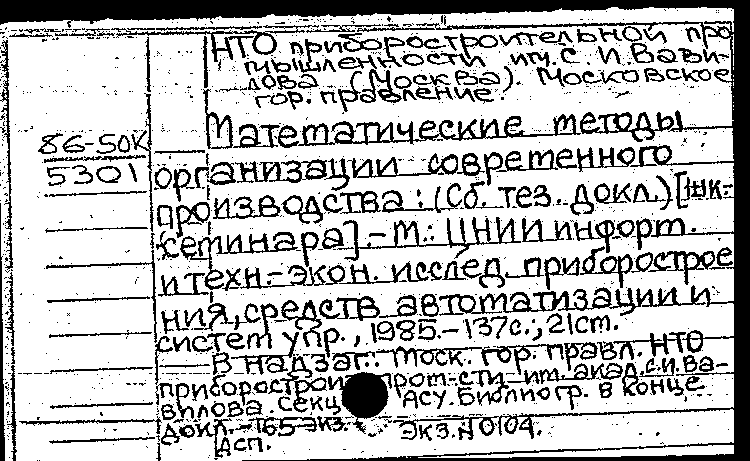 НТО приборостроительной про
мышленности им. С. И. Вави-
лова (Москва). Московское
гор. правление.
Математические методы
86-50К
5301
организации современного
производства : (Сб. тез. докл.) [шк.-
семинара]. - М.: ЦНИИ информ.
и техн.-экон. исслед. приборострое
ния, средств автоматизации и
систем упр., 1985.-137с.; 21см.
В надзаг.: Моск. гор. правл. НТО
приборостроит. пром-сти им. акад. С.И. Ва-
вилова. Секц АСУ. Библиогр. в конце
докл. - 165 экз. экз. N 0104.
Дсп.